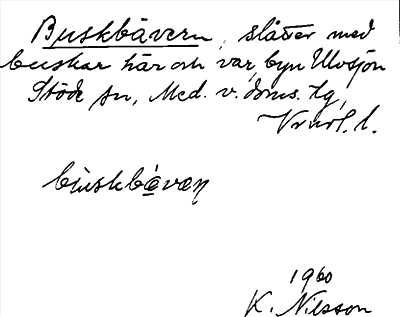 Buskbävern, slåtter med
buskar här och var, byn Ulvsjön
Stöde sn, Med. v. doms. tg,
Vrnrl. l.
buskbævan
1960
K. Nilsson